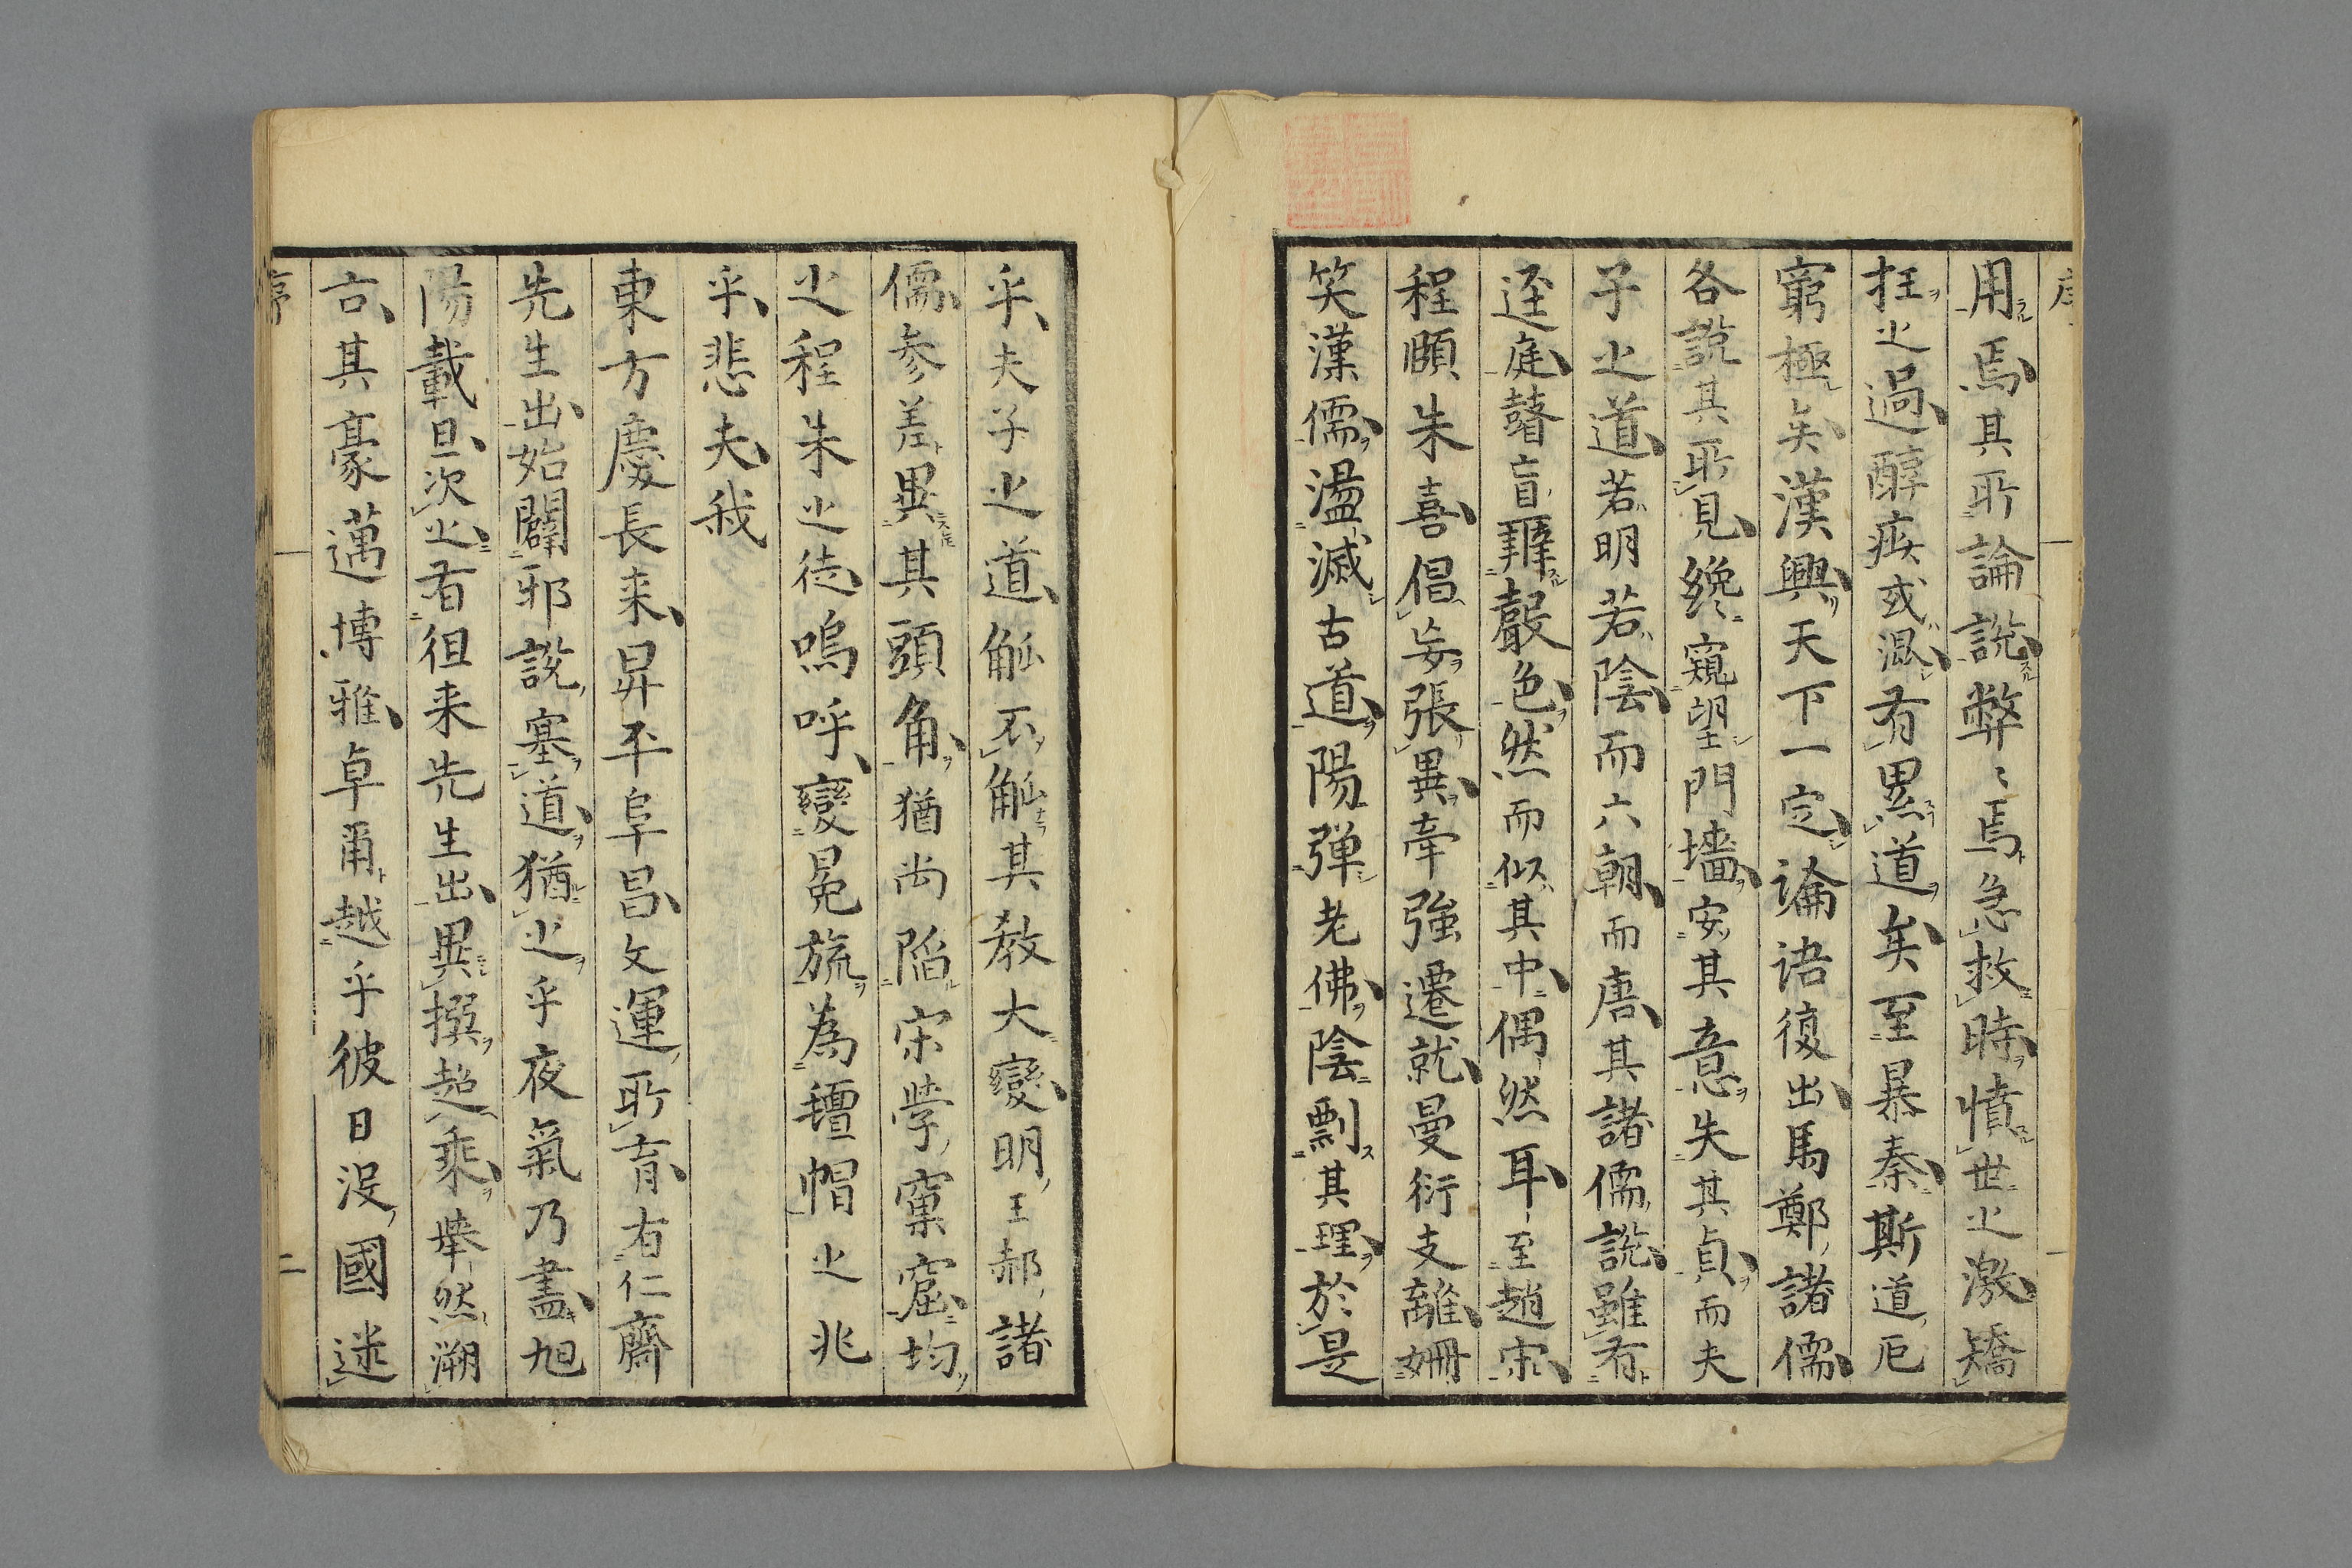 用焉其所論說弊〻焉急救時憤世之激矯
抂之過醇疾或溷有累道矣至暴秦斯道厄
窮極矣漢興天下一定論語復出馬鄭諸儒
各說其所見纔窺望門墻安其意失其貞而夫
子之道若明若陰而六朝而唐其諸儒說雖有
逕庭瞽盲聲色然而似其中偶然耳至趙宋
程頤朱熹倡妄張異牽強遷就曼衍支離姍
笑漢儒盪滅古道陽彈老佛陰剽其理於是
乎夫子之道觚不觚其教大變明王郝諸
儒參差異其頭角猶尚陷宋學窠窟均
之程朱之徒嗚呼變冕旒為氈帽之兆
乎悲夫我
東方慶長来昇平阜昌文運所育右仁齋
先生出始闢邪說塞道猶之乎夜氣乃盡旭
陽載旦次之有徂来先生出異撰超乘犖然溯
古其豪邁博雅卓爾越乎彼日没國迷
序
二